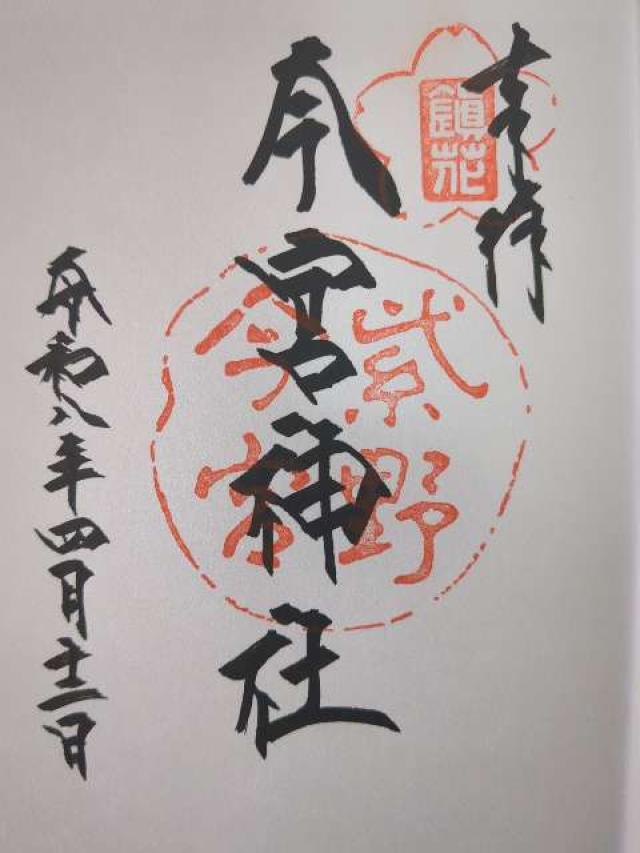 奉拝
鎮花
今宮神社
紫野
今宮
令和八年四月十二日